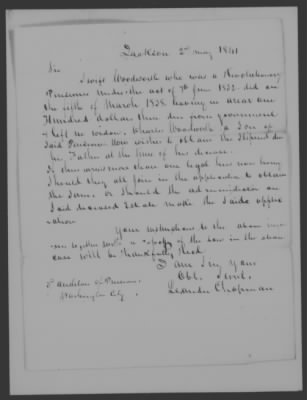 Jackson 2nd May 1841
Sir
George Woodworth who was a Revolutionary
Pensioner under the act of 7th June 1832. died on
the fifth of March 1838. leaving in arrears one
Hundred dollars then due from government
& left no widow. Charles Woodworth a Son of
Said Pensioner now wishes to obtain the Stipend due
his Father at the time of his decease.
Is there more than one legal heir now living
Should they all join in the application to obtain
the Same. or Should the administrator on
Said deceased Estate make the Said applic
ation
Your instructions to the above
together with a copy of the law in the above
case will be thankfully recd
I am Sir, Your
Obt. Servt.
Leander Chapman
To Auditor of Pensions
Washington City